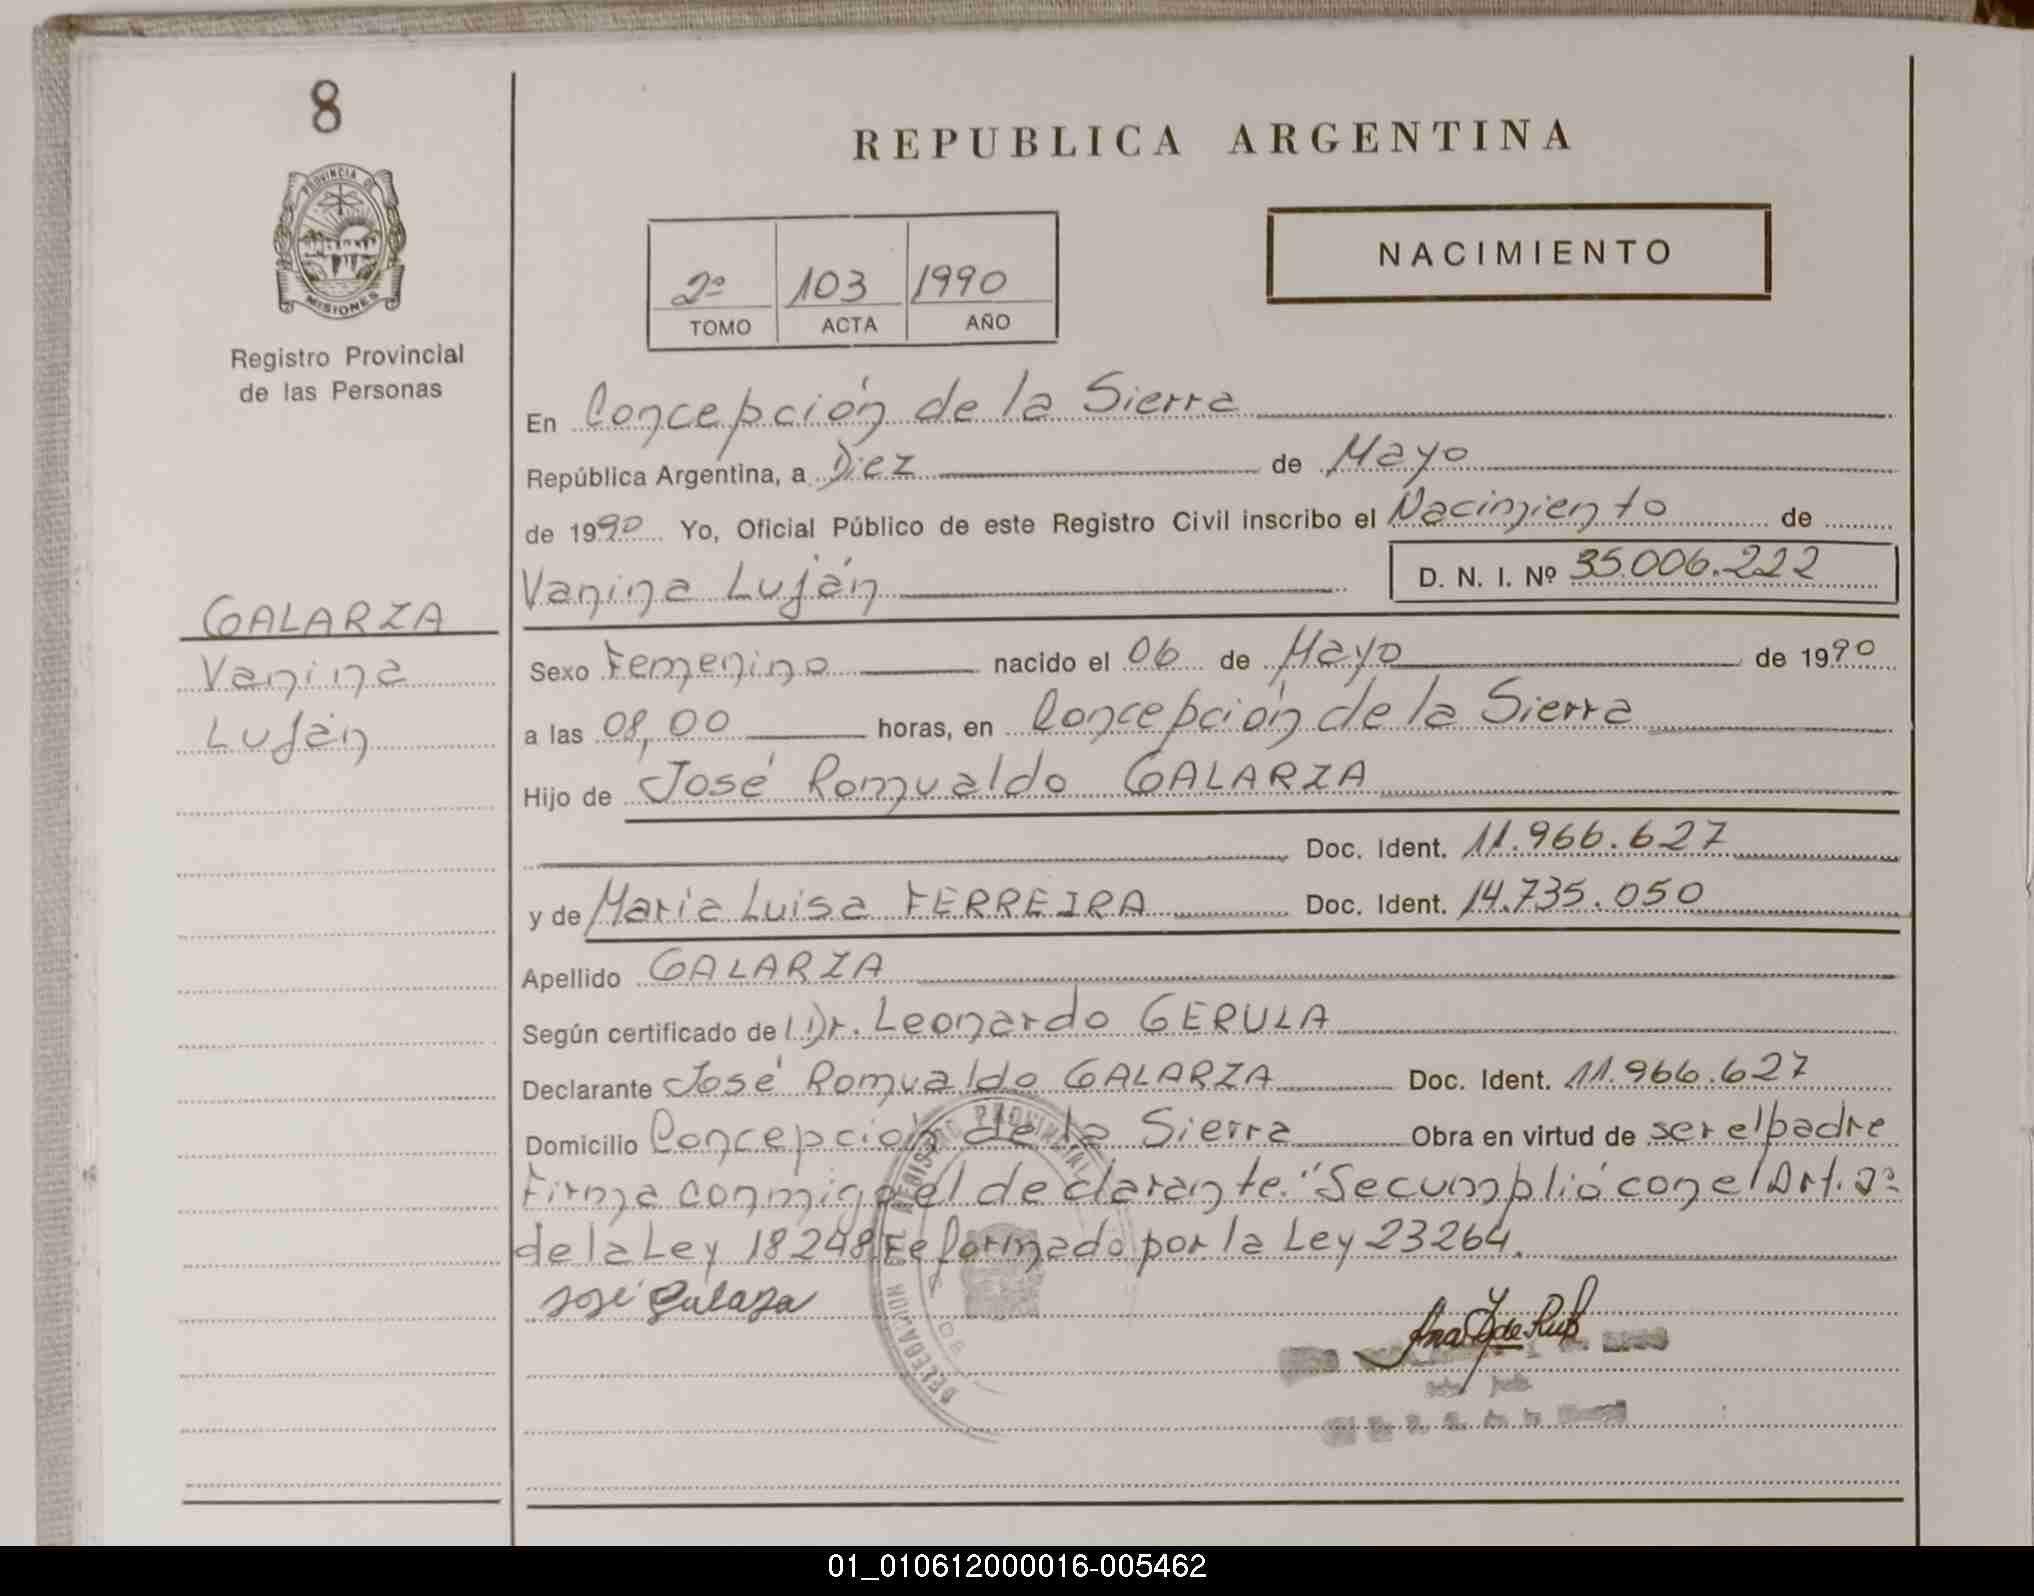 8
PROVINCIA DE
MISIONES
Registro Provincial
de las Personas
GALARZA
Vanina
Luján
REPUBLICA ARGENTINA
NACIMIENTO
2º 103 1990
TOMO ACTA AÑO
En Concepción de la Sierra
República Argentina, a Diez de Mayo
de 1990 Yo, Oficial Público de este Registro Civil inscribo el Nacimiento de
Vanina Luján D. N. I. Nº 35.006.222
Sexo Femenino nacido el 06 de Mayo de 1990
a las 08,00 horas, en Concepción de la Sierra
Hijo de José Romualdo GALARZA
Doc. Ident. 11.966.627
y de Maria Luisa FERREIRA Doc. Ident. 14.735.050
Apellido GALARZA
Según certificado de Dr. Leonardo GERULA
Declarante José Romualdo GALARZA Doc. Ident. 11.966.627
Domicilio Concepción de la Sierra Obra en virtud de ser el padre
Firma conmigo el declarante. "Se cumplió con el Art. 2º
de la Ley 18248 Reformado por la Ley 23264.
José Galarza
DELEGACION DEL REGISTRO PROVINCIAL
01_010612000016-005462